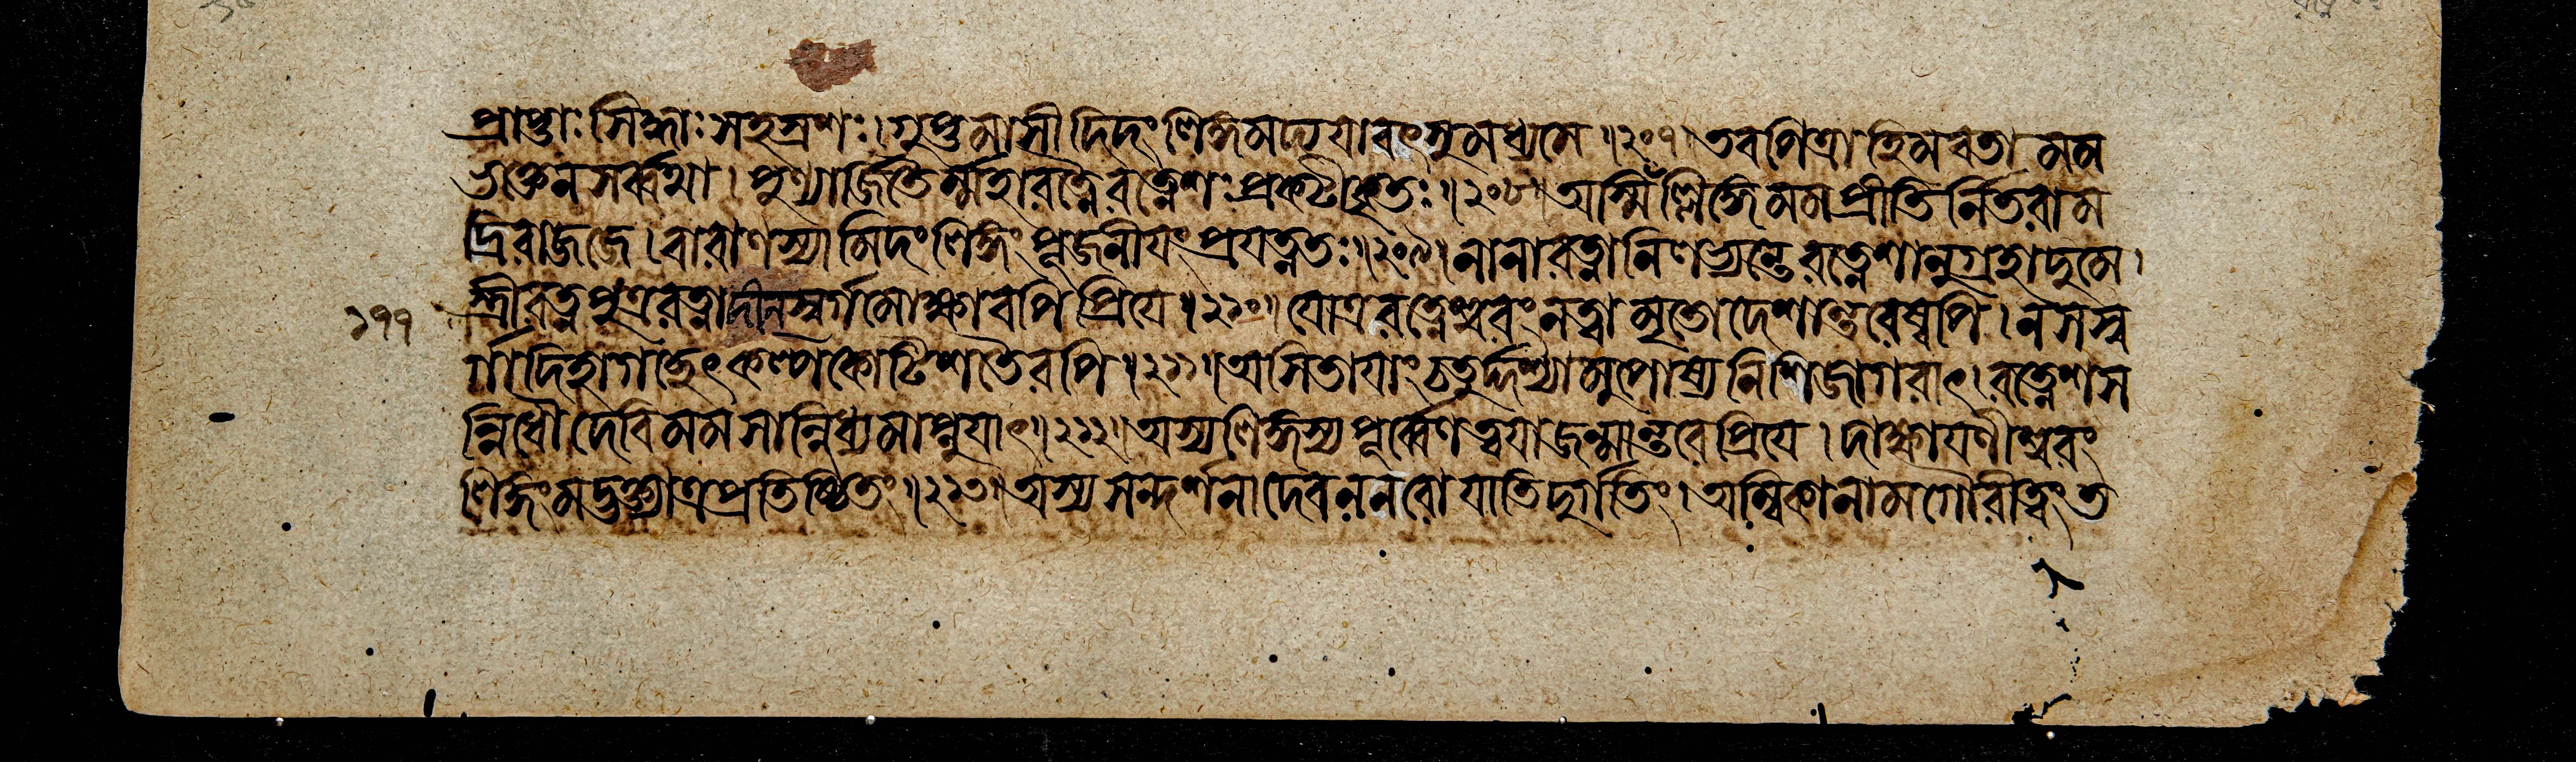 প্রাপ্তাঃ সিদ্ধাঃ সহস্রশঃ। গুপ্তমাসীদিদং লিঙ্গমদ্যযাবৎসুমধ্যমে॥২০৭॥ তবপিত্রাহিমবতা মম
ভক্তেনসর্ব্বথা। পুণ্যার্জিতৈর্ম্মহারত্নৈরত্নেশঃ প্রকটীকৃতঃ॥২০৮॥ অস্মিঁল্লিঙ্গেমমপ্রীতির্নিতরাম
দ্রিরাজজে। বারাণস্যামিদংলিঙ্গং পূজনীযং প্রযত্নতঃ॥২০৯॥ নানারত্নানিলভ্যন্তেরত্নেশানুগ্রহাদুমে।
১৭৭ স্ত্রীরত্নপুত্ররত্নাদীনস্বর্গমোক্ষাবপিপ্রিযে॥২১০॥ যোত্ররত্নেশ্বরং নত্বামৃতোদেশান্তরেষ্বপি। নসস্ব
র্গাদিহাগচ্ছেৎকল্পকোটিশতৈরপি॥২১১॥ অসিতাযাংচতুর্দ্দশ্যামুপোষ্যনিশিজাগরাৎ। রত্নেশস
ন্নিধৌদেবিমমসান্নিধ্যমাপ্নুযাৎ॥২১২॥ অস্যলিঙ্গস্যপূর্ব্বেণত্বযাজন্মান্তরেপ্রিযে। দাক্ষাযণীশ্বরং
লিঙ্গংমদ্ভক্ত্যাত্রপ্রতিষ্ঠিতং॥২১৩॥ অস্যসন্দর্শনাদেবননরোযাতিদুর্গতিং। অম্বিকানামগৌরীত্বংত